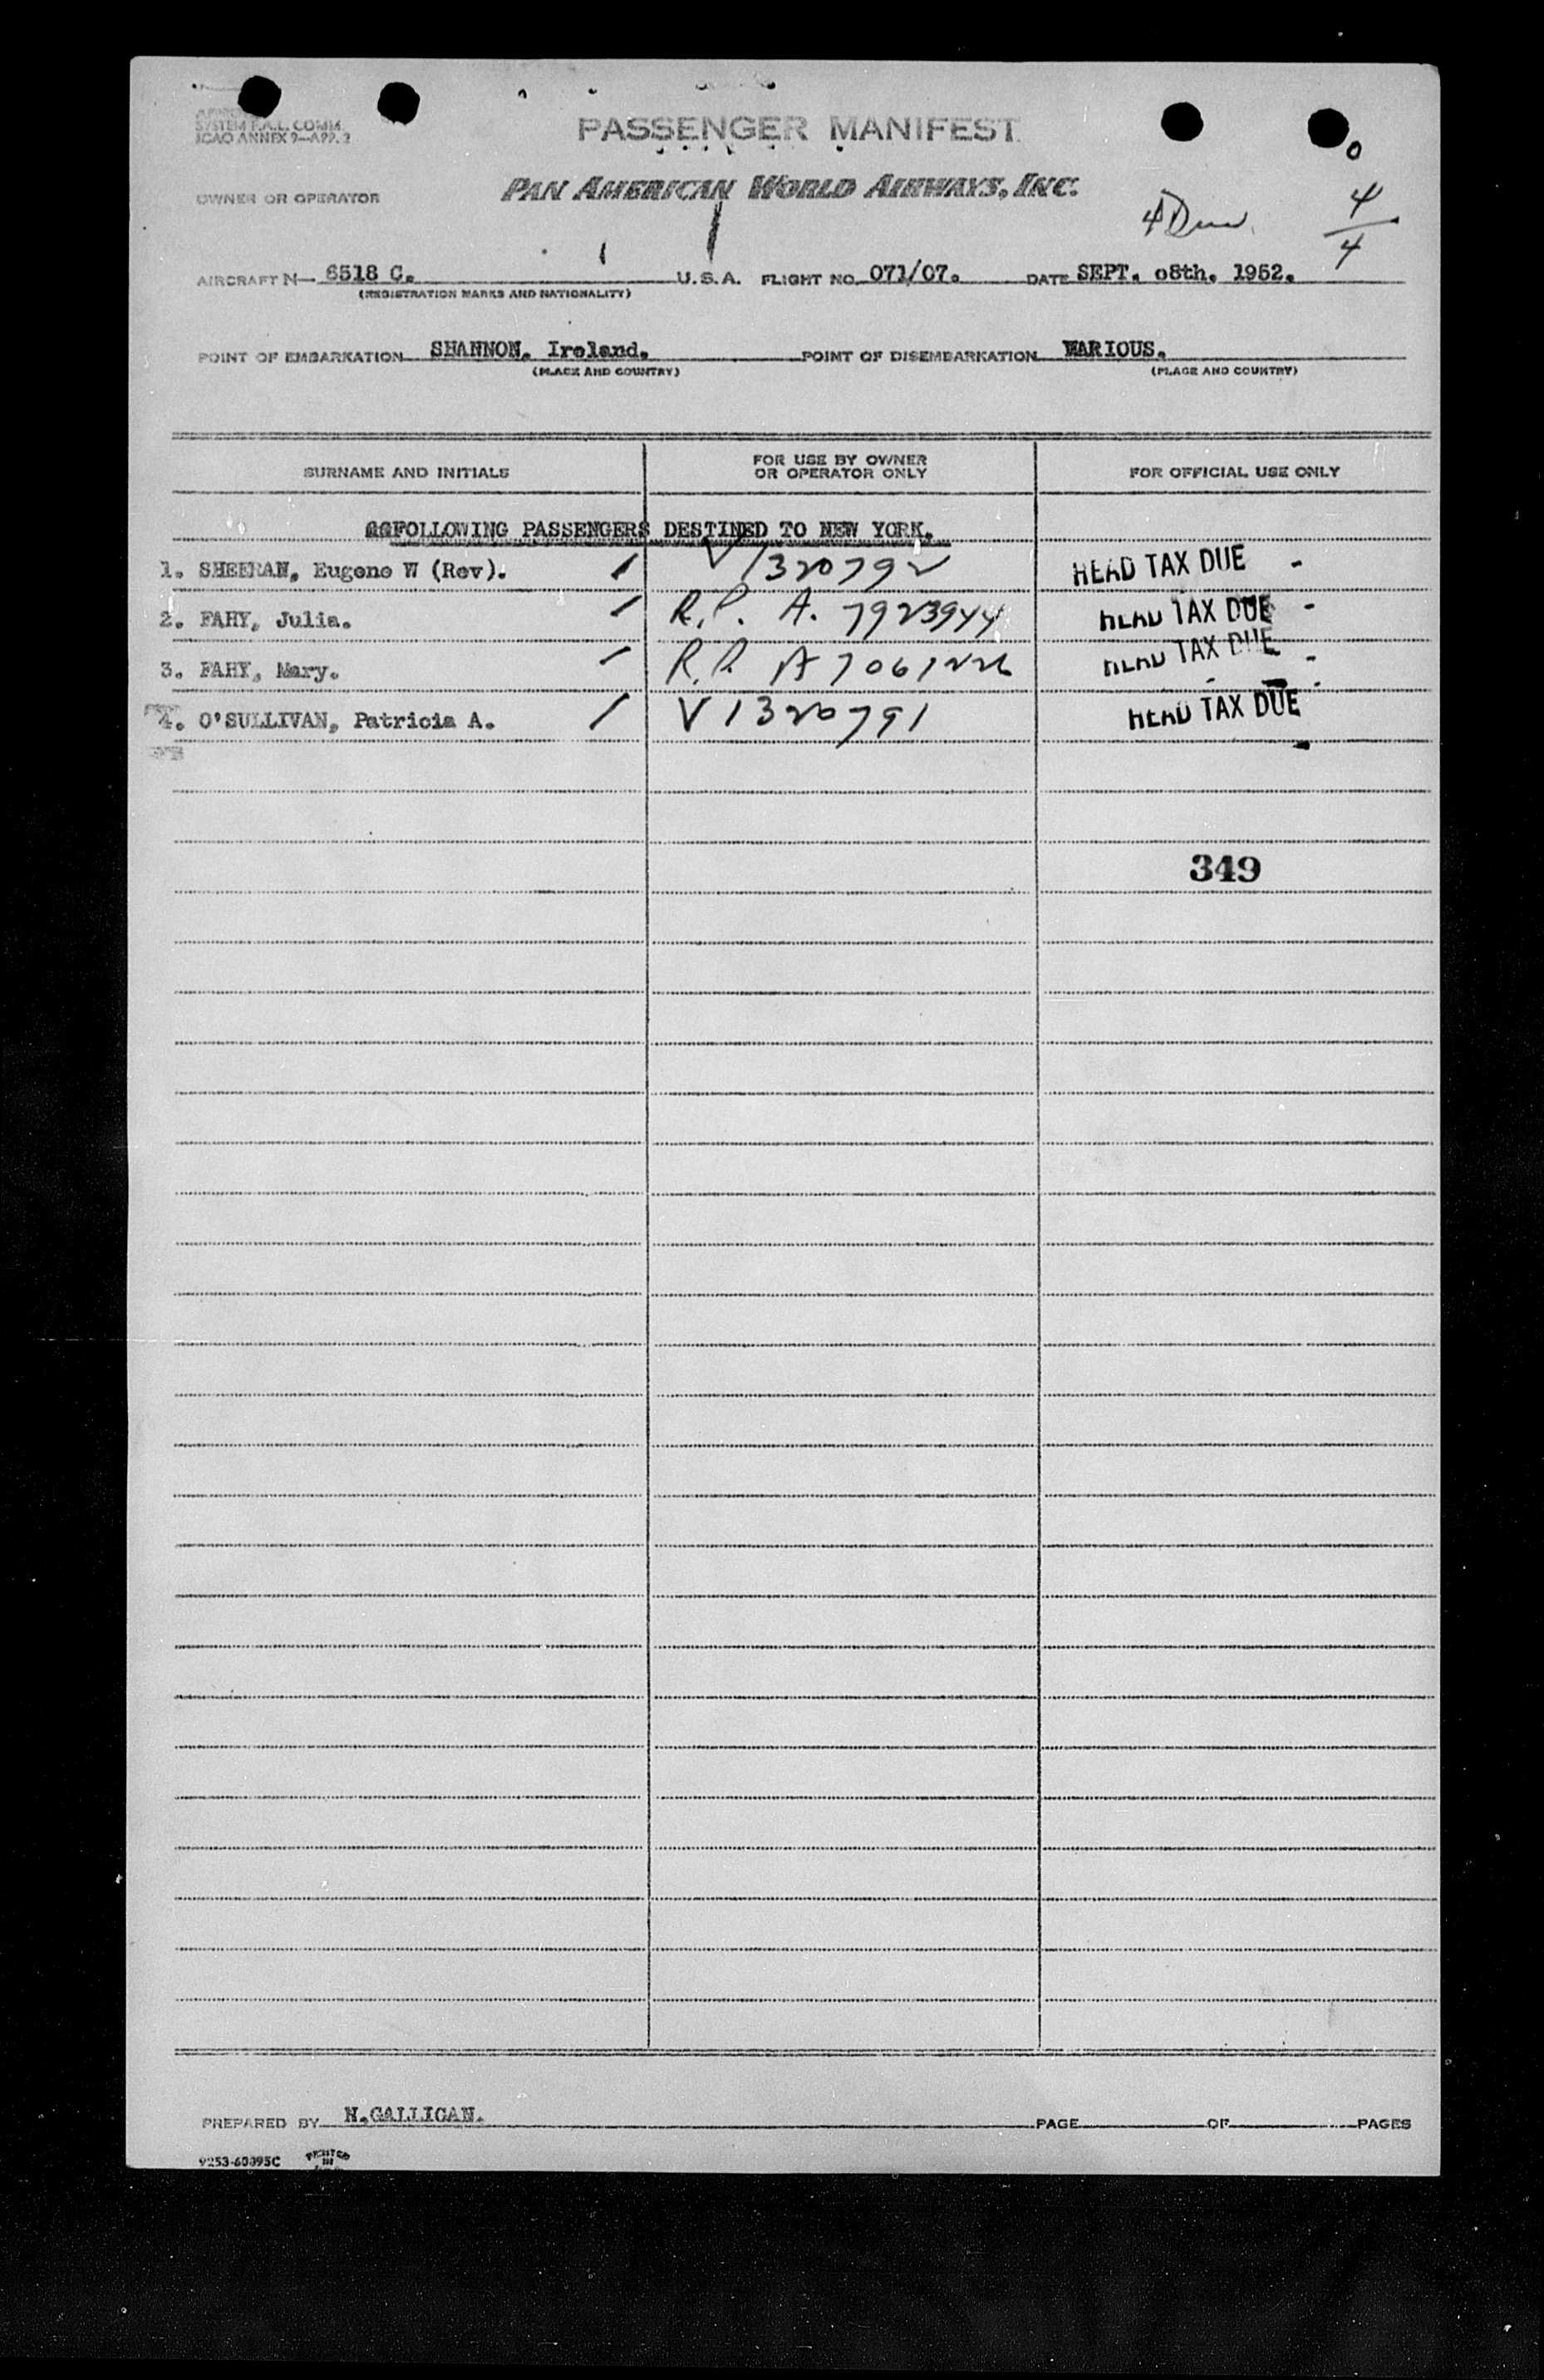 SYSTEM F.A.L. COMM.
ICAO ANNEX 9-APP. 3
PASSENGER MANIFEST
OWNER OR OPERATOR
PAN AMERICAN WORLD AIRWAYS, INC.
4 Due
4
4
AIRCRAFT N- 6518 C. U.S.A. FLIGHT NO. 071/07. DATE SEPT. 08th. 1952.
(REGISTRATION MARKS AND NATIONALITY)
POINT OF EMBARKATION SHANNON. Ireland. POINT OF DISEMBARKATION VARIOUS.
(PLACE AND COUNTRY) (PLACE AND COUNTRY)
SURNAME AND INITIALS FOR USE BY OWNER OR OPERATOR ONLY FOR OFFICIAL USE ONLY
FOLLOWING PASSENGERS DESTINED TO NEW YORK.
1. SHEERAN, Eugene W (Rev). V1320792 HEAD TAX DUE -
2. FAHY, Julia. R.P. A. 7923944 HEAD TAX DUE -
3. FAHY, Mary. R.P. A 7061226 HEAD TAX DUE -
4. O'SULLIVAN, Patricia A. V1320791 HEAD TAX DUE
349
PREPARED BY N.GALLIGAN. PAGE OF PAGES
9253-60095C PRINTED IN